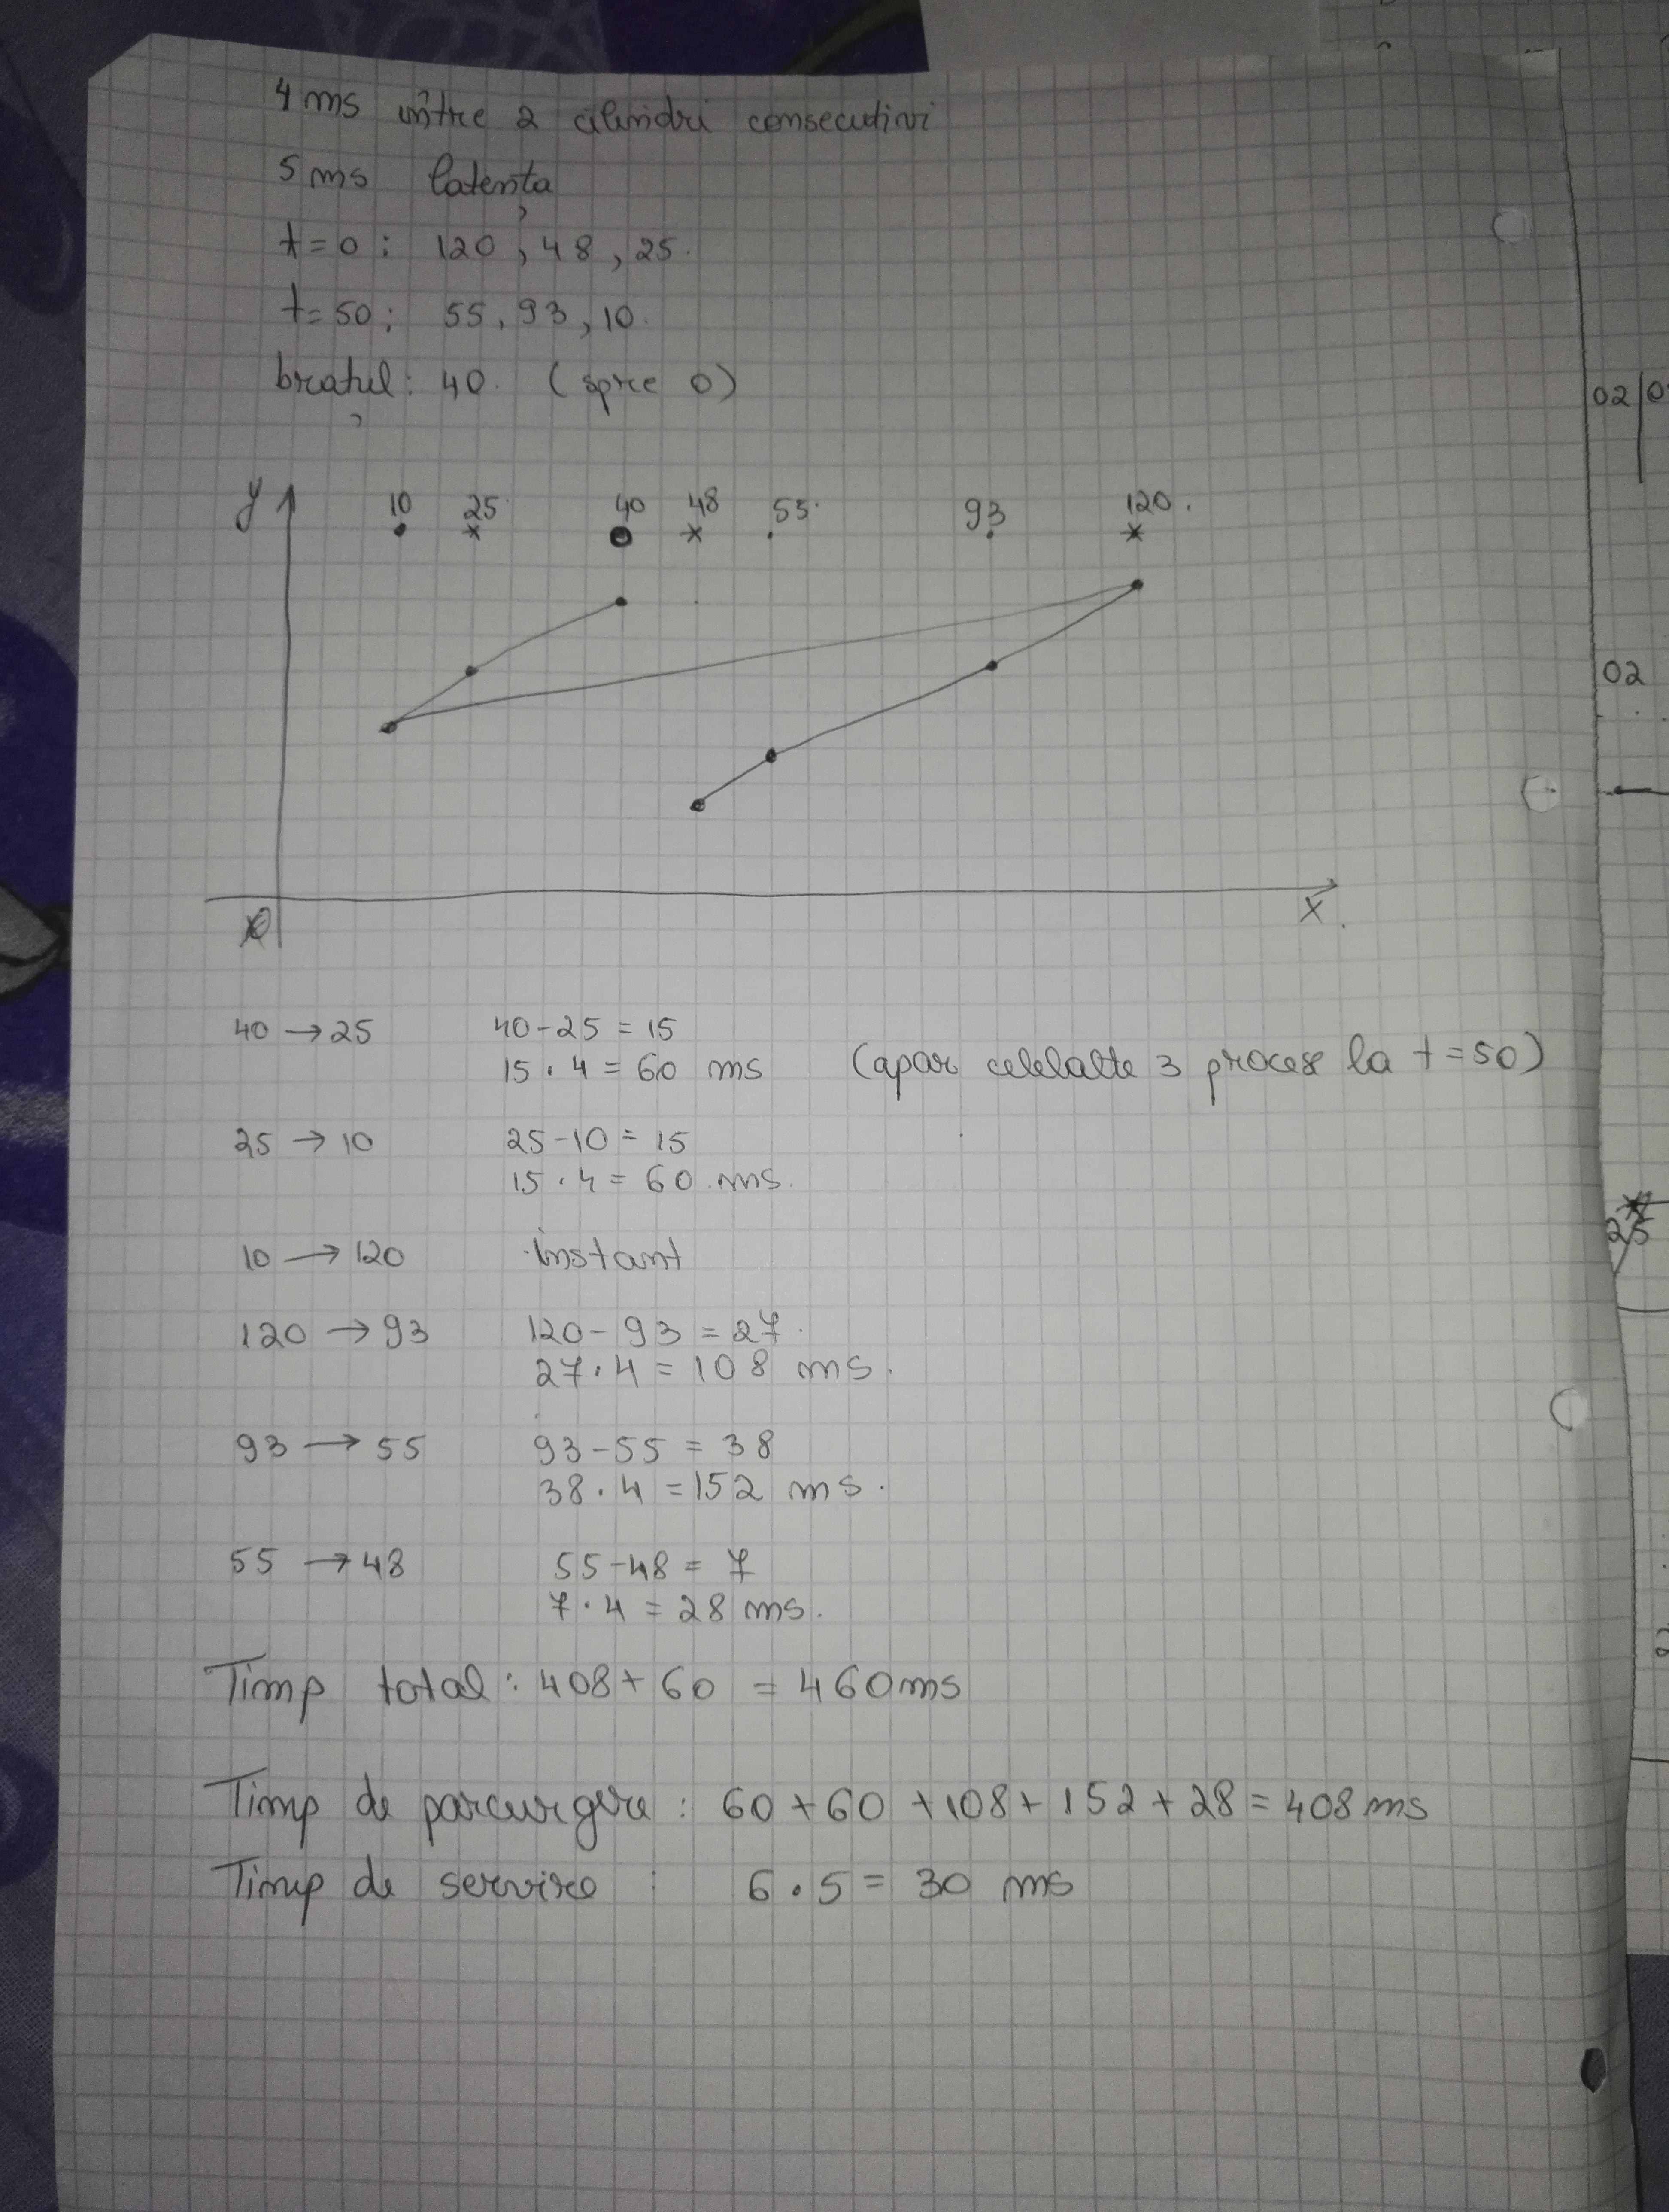 4 ms între 2 cilindri consecutivi
5 ms latența
t=0: 120, 48, 25.
t=50: 55, 93, 10.
brațul: 40. (spre 0)
y 10 25 40 48 55. 93 120.
x.
40 → 25 40-25 = 15
15 . 4 = 60 ms (apar celelalte 3 procese la t=50)
25 → 10 25-10 = 15
15 . 4 = 60 ms.
10 → 120 instant
120 → 93 120-93 = 27.
27.4 = 108 ms.
93 → 55 93-55 = 38
38.4 = 152 ms.
55 → 48 55-48 = 7
7.4 = 28 ms.
Timp total: 408+60 = 460ms
Timp de parcurgere: 60+60+108+152+28=408ms
Timp de servire : 6.5= 30 ms
02 0
02
25